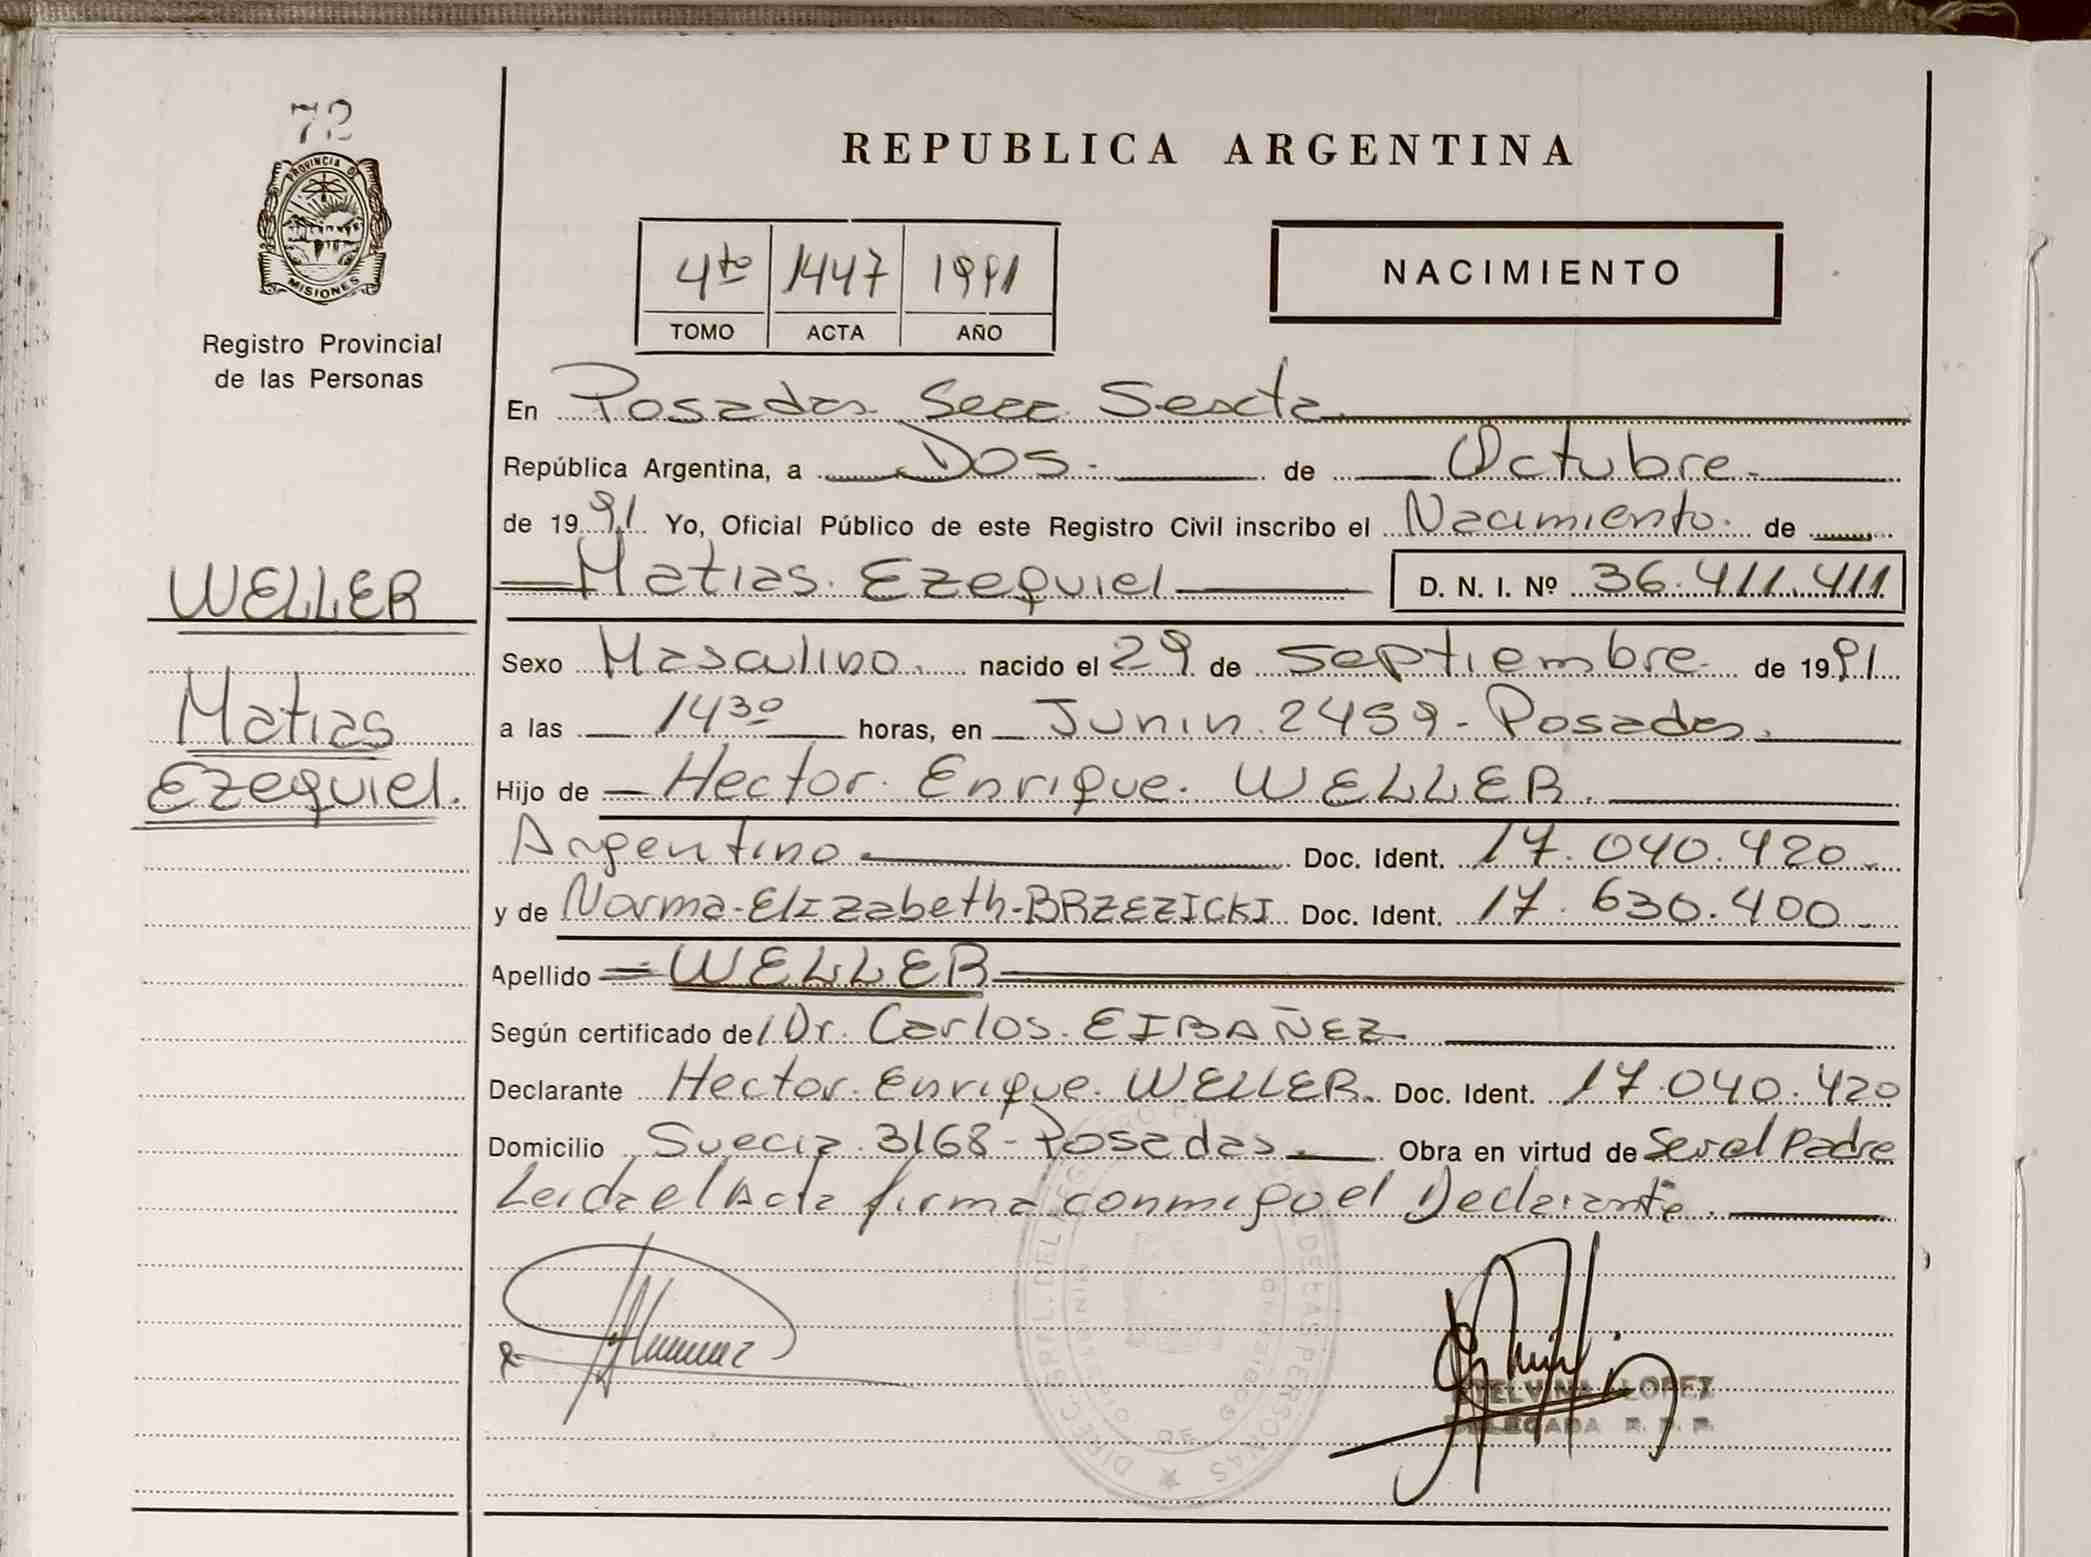 72
PROVINCIA DE
MISIONES
Registro Provincial
de las Personas
WELLER
Matias
Ezequiel.
REPUBLICA ARGENTINA
4to 1447 1991
TOMO ACTA AÑO
NACIMIENTO
En Posadas Secc Sexta
República Argentina, a Dos. de Octubre.
de 1991 Yo, Oficial Público de este Registro Civil inscribo el Nacimiento. de
Matias. Ezequiel D. N. I. Nº 36.411.411
Sexo Masculino. nacido el 29 de septiembre. de 1991
a las 1430 horas, en Junin. 2459 - Posadas.
Hijo de Hector. Enrique. WELLER.
Argentino Doc. Ident. 17.040.420
y de Norma-Elizabeth-BRZEZICKI Doc. Ident. 17.630.400
Apellido WELLER
Según certificado del Dr. Carlos. E IBAÑEZ
Declarante Hector. Enrique. WELLER. Doc. Ident. 17.040.420
Domicilio Suecia 3168 - Posadas. Obra en virtud de Ser el Padre
Leida el Acta firma conmigo el Declarante.
DE LAS PERSONAS
GOBIERNO DE
ETELVINA LOPEZ
DELEGADA R. P. P.